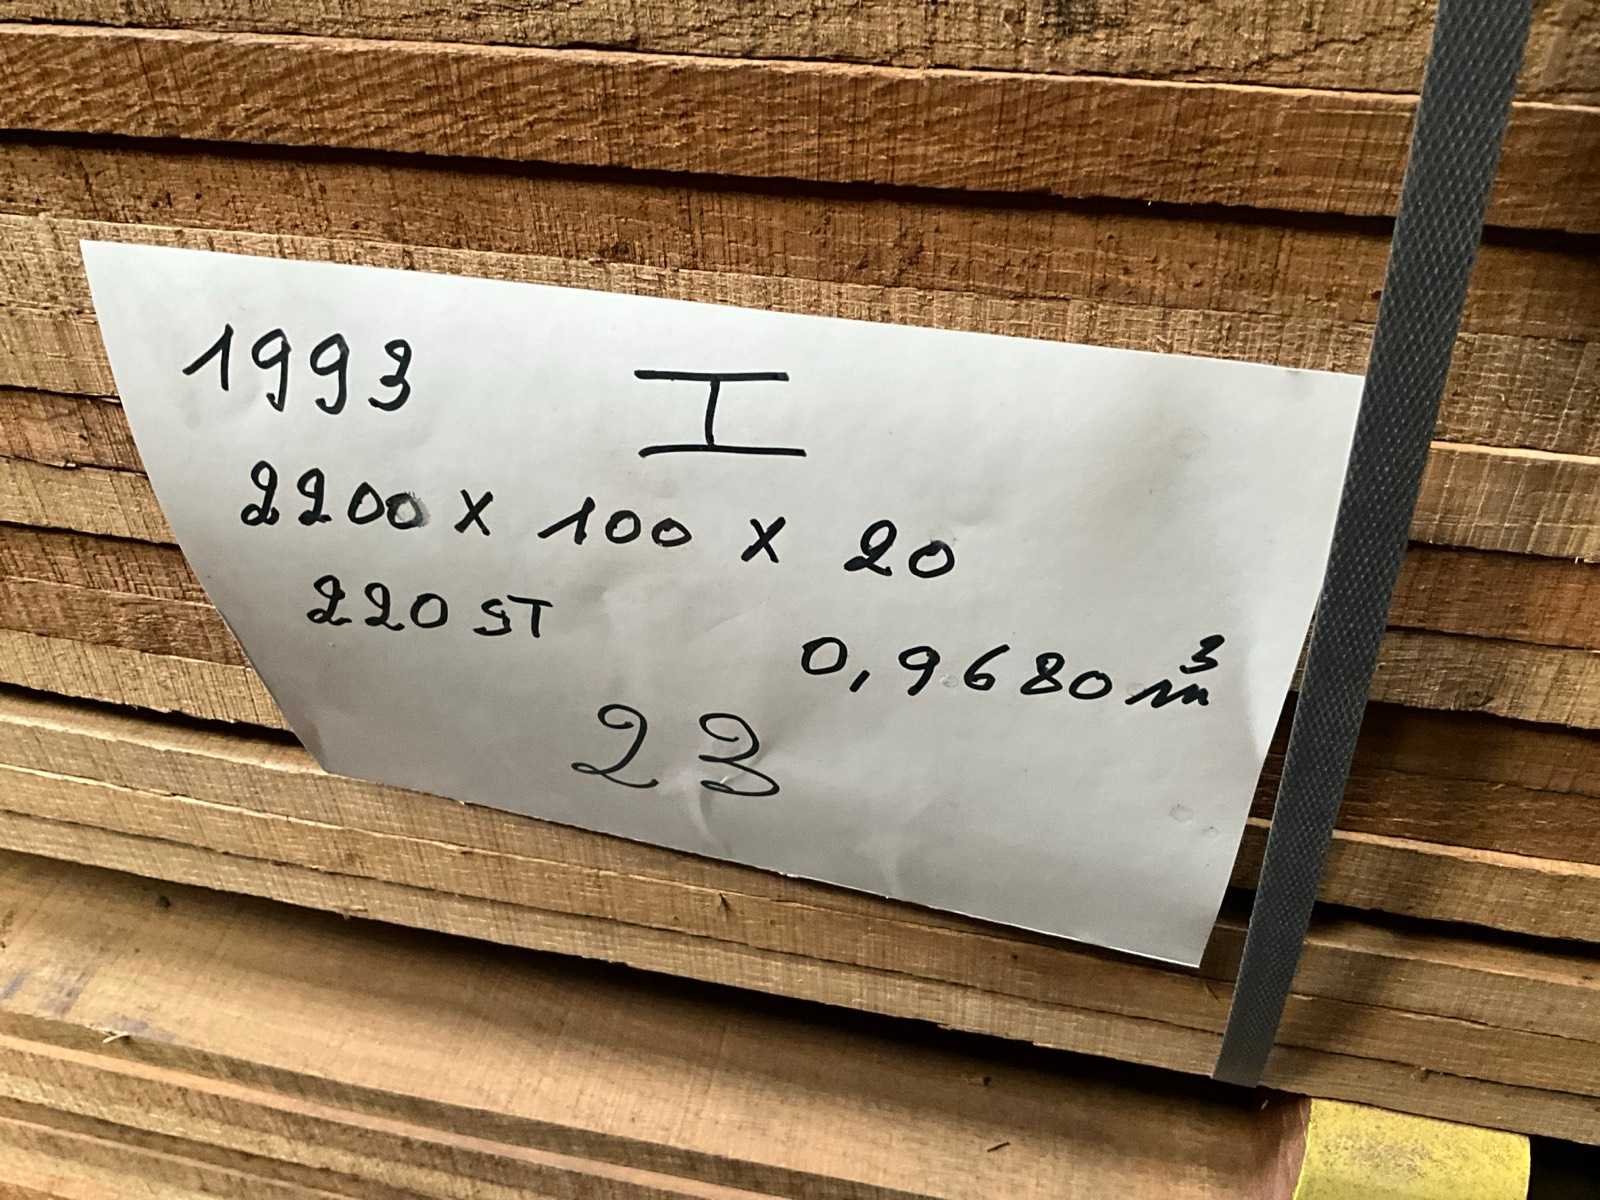 1993 I
2200 x 100 x 20
220 ST
0,9680 m³
23